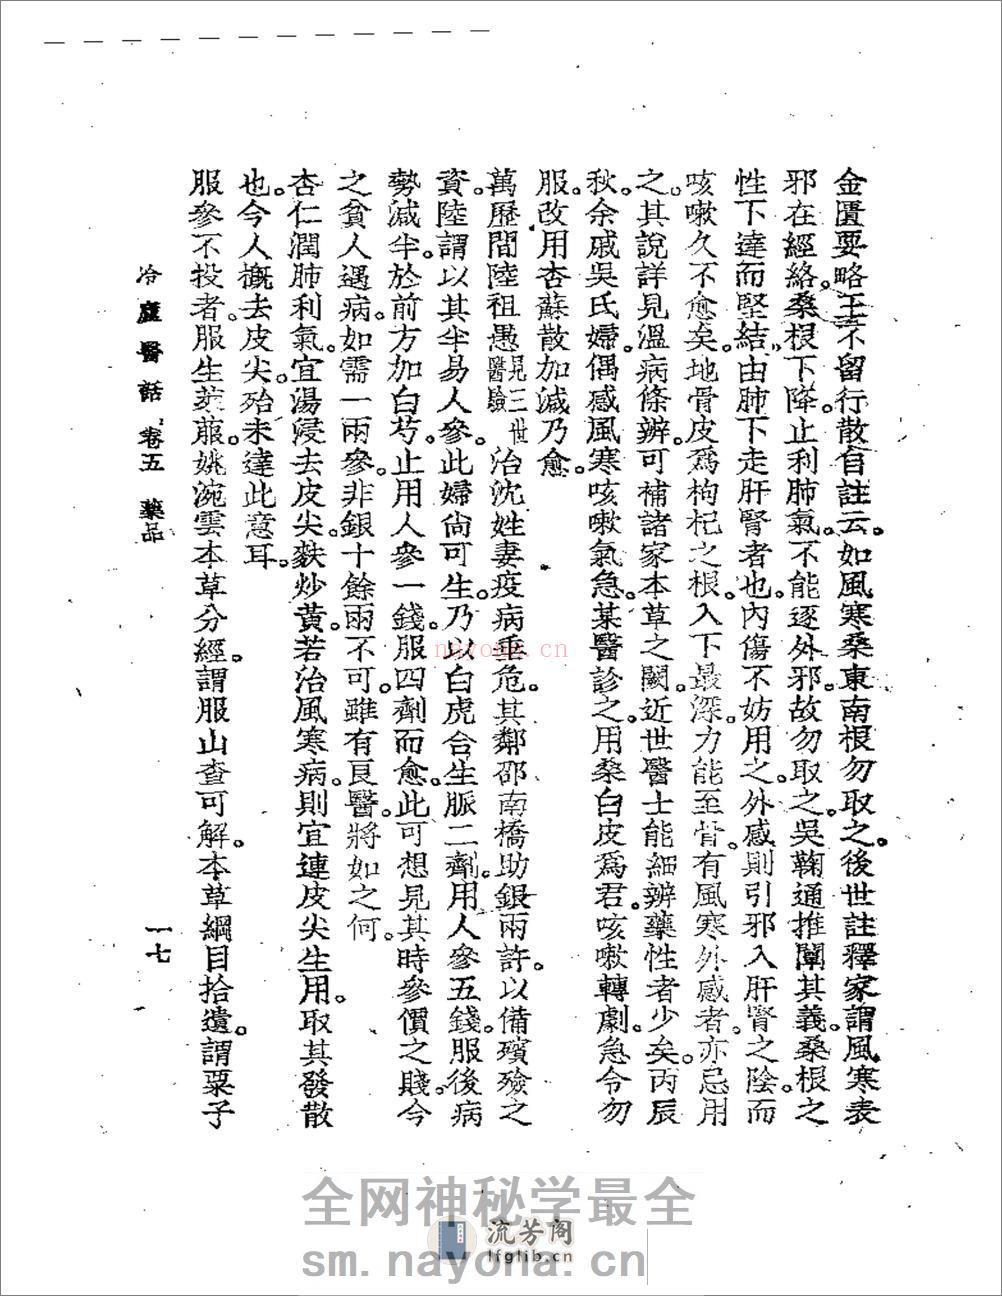 金匱要略王不留行散自註云。如風寒桑東南根勿取之。後世註釋家謂風寒表
邪在經絡。桑根下降。止利肺氣。不能逐外邪。故勿取之。吳鞠通推闡其義。桑根之
性下達而堅結。由肺下走肝腎者也。內傷不妨用之。外感則引邪入肝腎之陰。而
咳嗽久不愈矣。地骨皮爲枸杞之根。入下最深。力能至骨。有風寒外感者。亦忌用
之。其說詳見溫病條辨。可補諸家本草之闕。近世醫士能細辨藥性者少矣。丙辰
秋。余戚吳氏婦。偶感風寒。咳嗽氣急。某醫診之。用桑白皮爲君。咳嗽轉劇。急令勿
服。改用杏蘇散加減乃愈。
萬歷間陸祖愚見三世醫驗治沈姓妻疫病垂危。其鄰邵南橋助銀兩許。以備殯殮之
資。陸謂以其半易人參。此婦尙可生。乃以白虎合生脈二劑。用人參五錢。服後病
勢減半。於前方加白芍。止用人參一錢。服四劑而愈。此可想見其時參價之賤。今
之貧人遇病。如需一兩參。非銀十餘兩不可。雖有良醫。將如之何。
杏仁潤肺利氣。宜湯浸去皮尖。麩炒黃。若治風寒病。則宜連皮尖生用。取其發散
也。今人概去皮尖。殆未達此意耳。
服參不投者。服生萊菔。姚瀚雲本草分經。謂服山查可解。本草綱目拾遺。謂粟子
冷廬醫話 卷五 藥品
一七
nayona.cn
全网神秘学最全
流芳阁
lfglib.cn
sm.nayona.cn